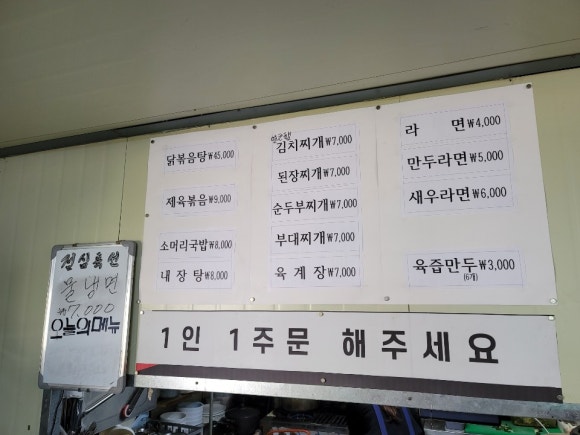 닭볶음탕 ₩45,000
제육볶음 ₩9,000
소머리국밥 ₩8,000
내장탕 ₩8,000
김치찌개 ₩7,000
된장찌개 ₩7,000
순두부찌개 ₩7,000
부대찌개 ₩7,000
육계장 ₩7,000
라 면 ₩4,000
만두라면 ₩5,000
새우라면 ₩6,000
육즙만두 ₩3,000
(6개)
점심특선
물냉면
₩7,000
오늘의메뉴
1인 1주문 해주세요